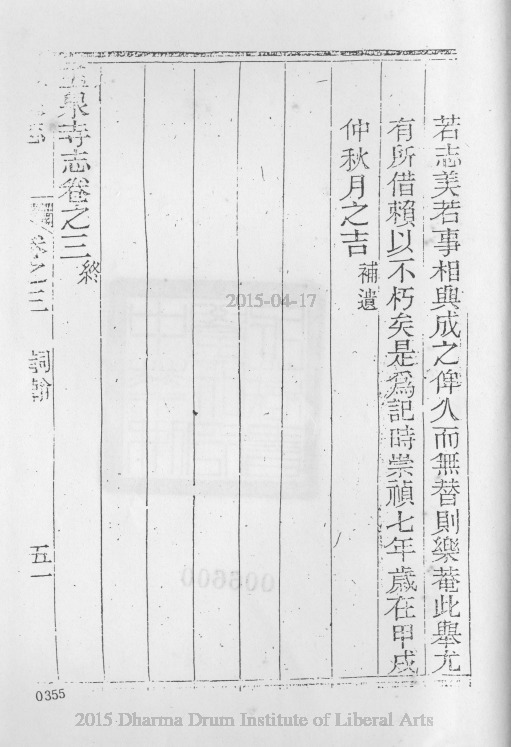 若志美若事相與成之俾久而無替則樂菴此舉尤
有所借賴以不朽矣是爲記時崇禎七年歲在甲戌
仲秋月之吉 補遺
玉泉寺志卷之三 終
卷之三 詞翰 五一
2015-04-17
005600
0355
2015 Dharma Drum Institute of Liberal Arts